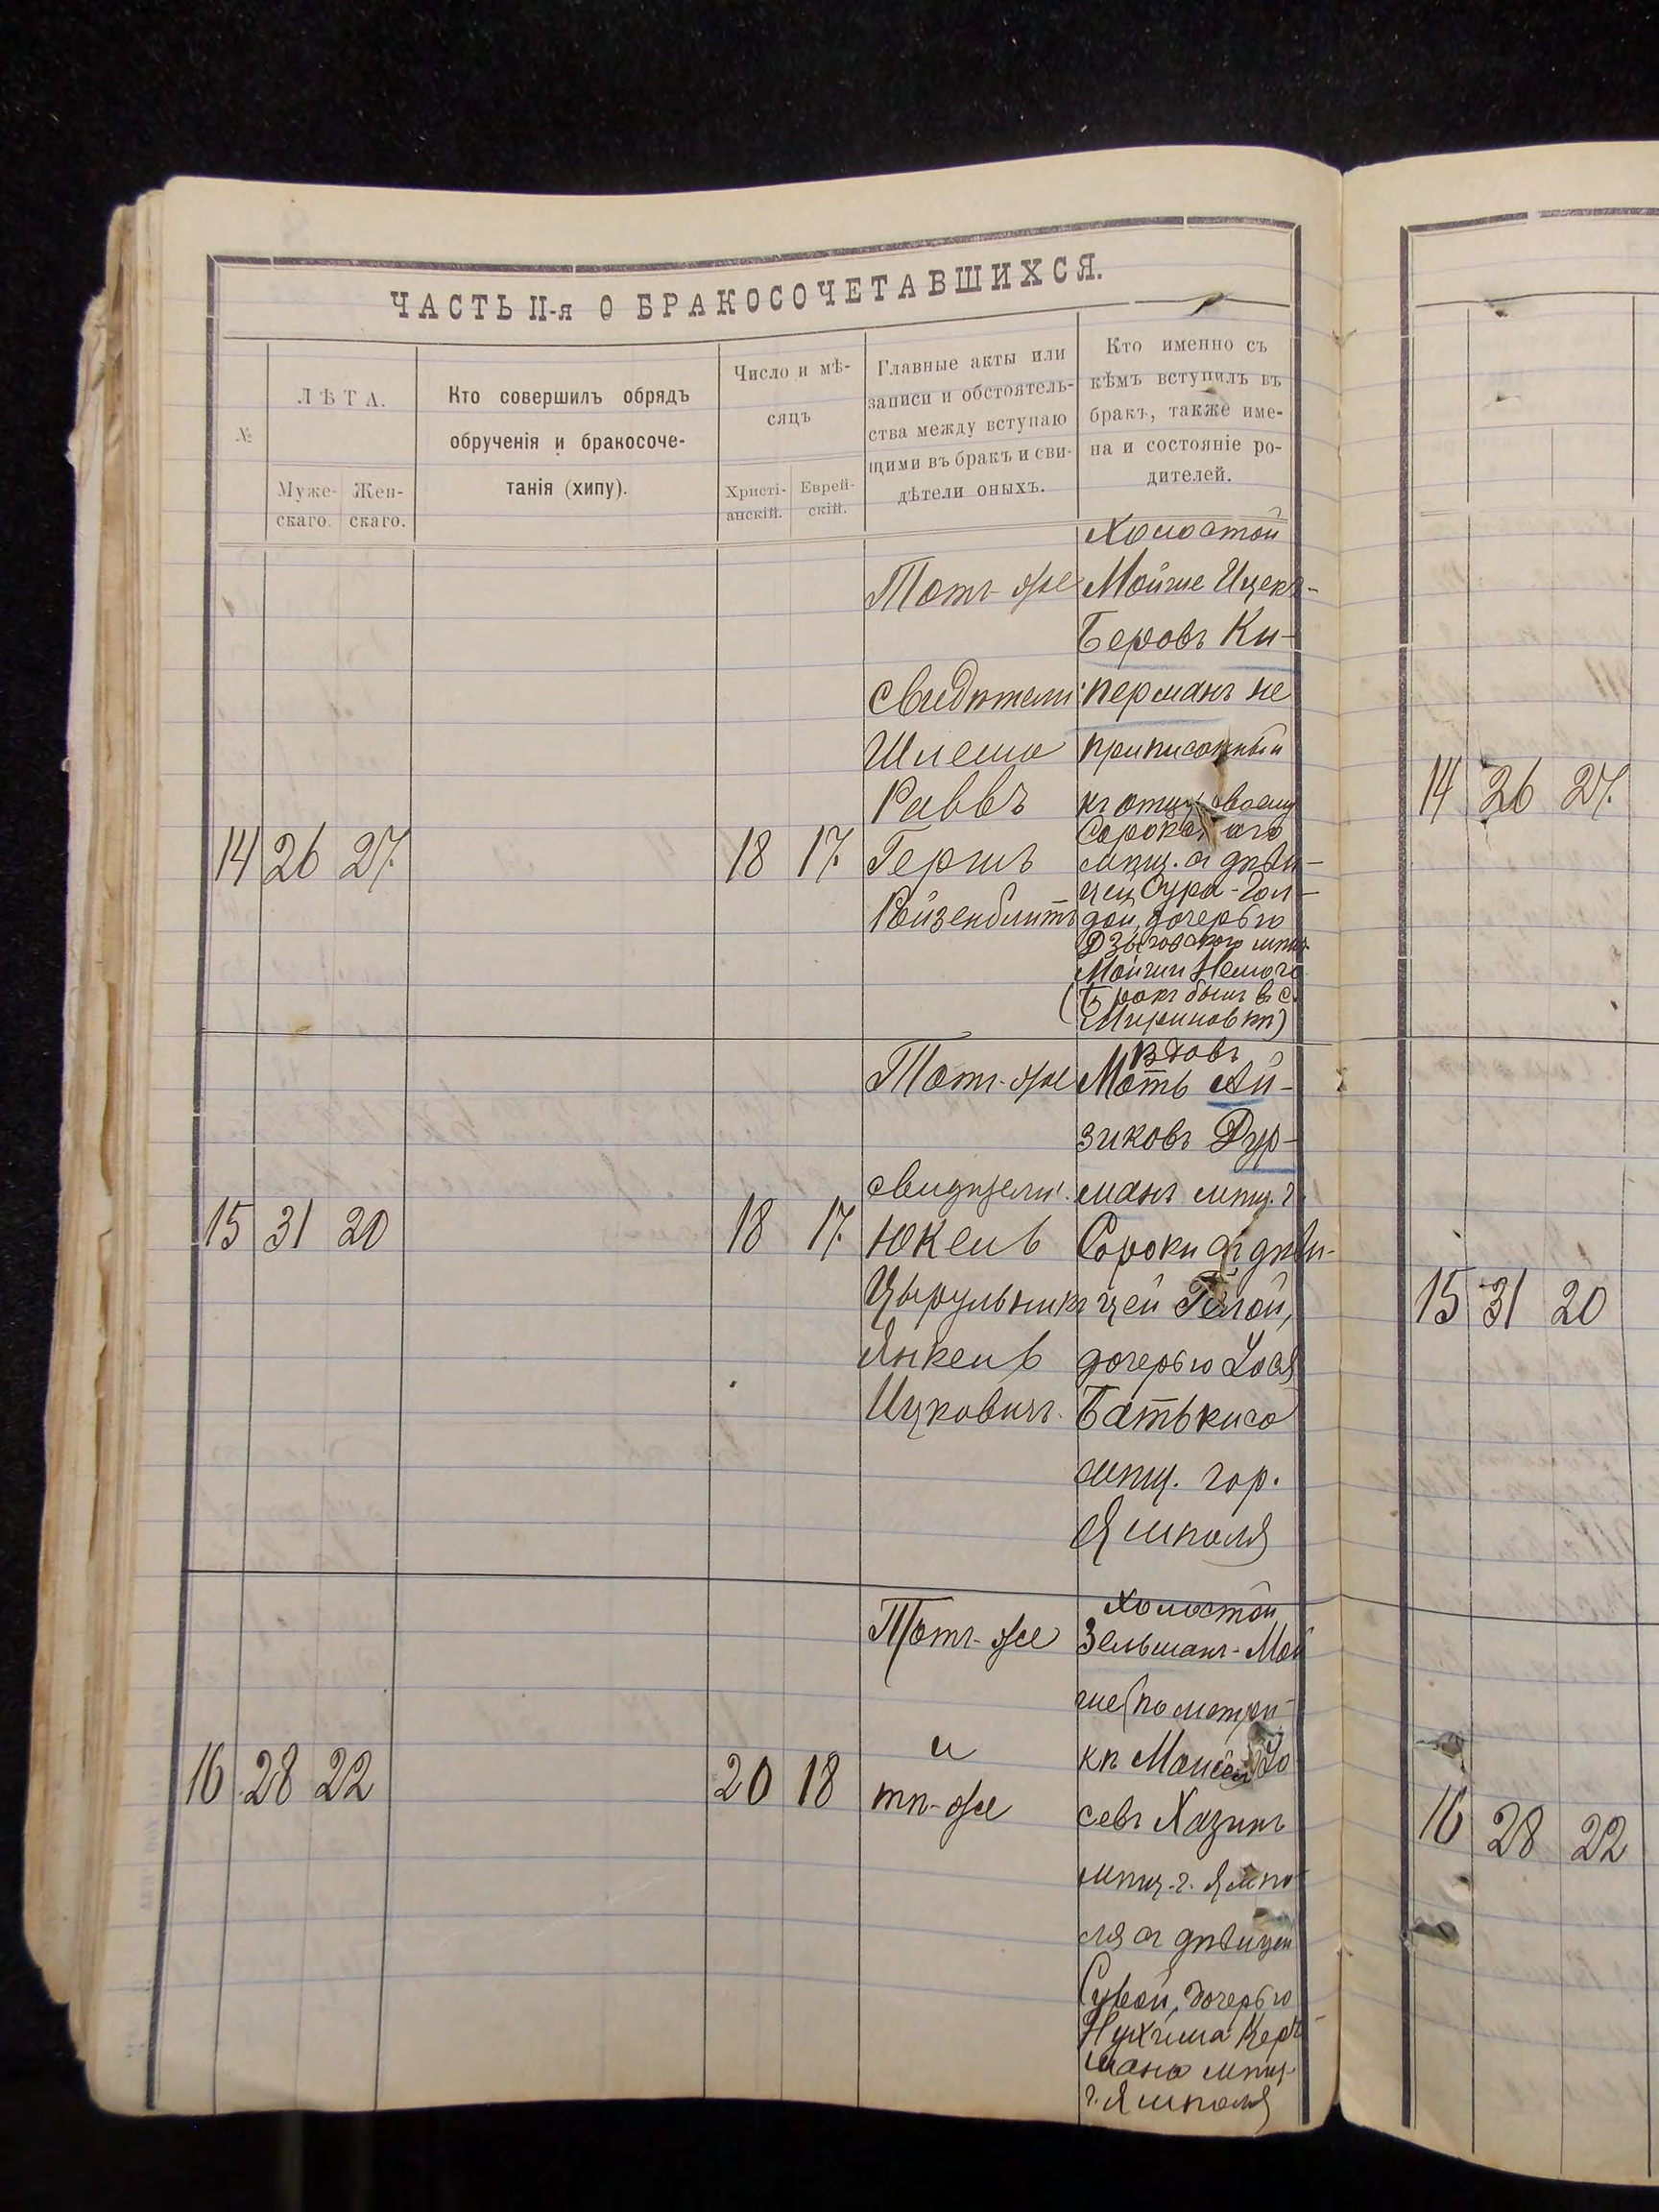 ЧАСТЬ II-я О БРАКОСОЧЕТАВШИХСЯ.
№
ЛѢТА.
Муже-
скаго.
Жен-
скаго.
Кто совершилъ обрядъ
обрученія и бракосоче-
танія (хипу).
Число и мѣ-
сяцъ
Христі-
анскій.
Еврей-
скій.
Главные акты или
записи и обстоятель-
ства между вступаю
щими въ бракъ и сви-
дѣтели оныхъ.
Кто именно съ
кѣмъ вступилъ въ
бракъ, также име-
на и состояніе ро-
дителей.
14 26 27
18 17
Тотъ-же
свидѣтели:
Шлема
Раввъ
Гершъ
Ройзенблитъ
Холостой
Мойше Ицекъ-
Беровъ Ки-
перманъ не
приписанный
къ отцу своему
мѣщ. съ дѣви-
цей Сура-Гол-
дой, дочерью
Дзыговскаго мѣщ.
Мойши Немого
(Бракъ былъ въ с.
Мироновкѣ)
15 31 20
18 17
Тотъ-же
свидѣтели:
Юкель
Цырульникъ
Янкель
Ицковичъ
Вдовъ
Моть Ай-
зиковъ Дур-
манъ мѣщ. г.
Сороки съ дѣви-
цей
дочерью Іося
Батькиса
мѣщ. гор.
Ямполя
16 28 22
20 18
Тотъ-же
и
тѣ-же
Холостой
Зельманъ-Мой
ше (по метри-
кѣ Моисей Іо
севъ Хазинъ
мѣщ. г. Ямпо
ля съ дѣвицей
дочерью
Нухима Кер
мана мѣщ.
г. Ямполя
14 26 27
15 31 20
16 28 22